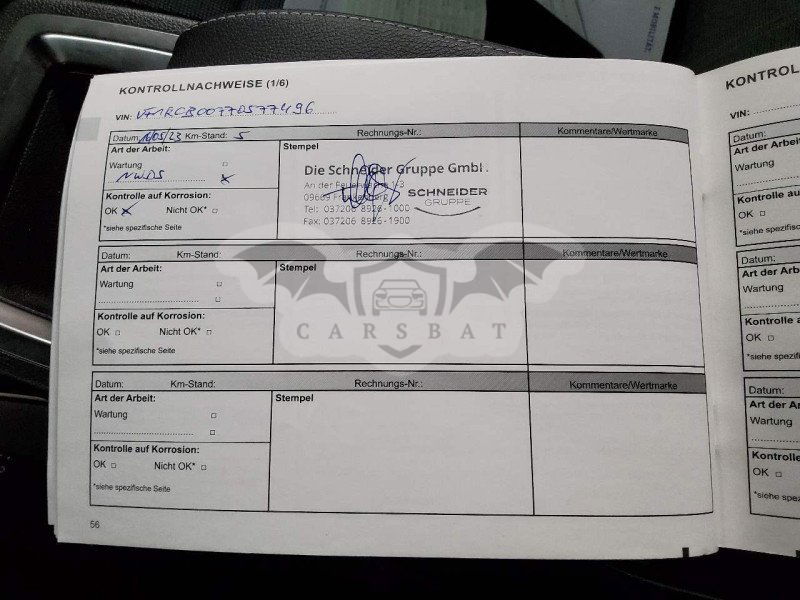 E MOBILITÄT.
KONTROLLNACHWEISE (1/6)
VIN: VF1RCB00770577496
Datum: 16/05/23 Km-Stand: 5 Rechnungs-Nr.: Kommentare/Wertmarke
Art der Arbeit: Stempel
Wartung
NWDS
Kontrolle auf Korrosion:
OK Nicht OK*
*siehe spezifische Seite
Die Schneider Gruppe GmbH
An der 1/3
09669
Tel: 037206 8926-1000
Fax: 037206 8926-1900
SCHNEIDER
GRUPPE
Datum: Km-Stand: Rechnungs-Nr.: Kommentare/Wertmarke
Art der Arbeit: Stempel
Wartung
Kontrolle auf Korrosion:
OK Nicht OK*
*siehe spezifische Seite
CARSBAT
Datum: Km-Stand: Rechnungs-Nr.: Kommentare/Wertmarke
Art der Arbeit: Stempel
Wartung
Kontrolle auf Korrosion:
OK Nicht OK*
*siehe spezifische Seite
56
KONTROLL
VIN:
Datum:
Art der Arbeit
Wartung
Kontrolle a
OK
*siehe spezifi
Datum:
Art der Arb
Wartung
Kontrolle
OK
*siehe spezi
Datum:
Art der Ar
Wartung
Kontrolle
OK
*siehe spe